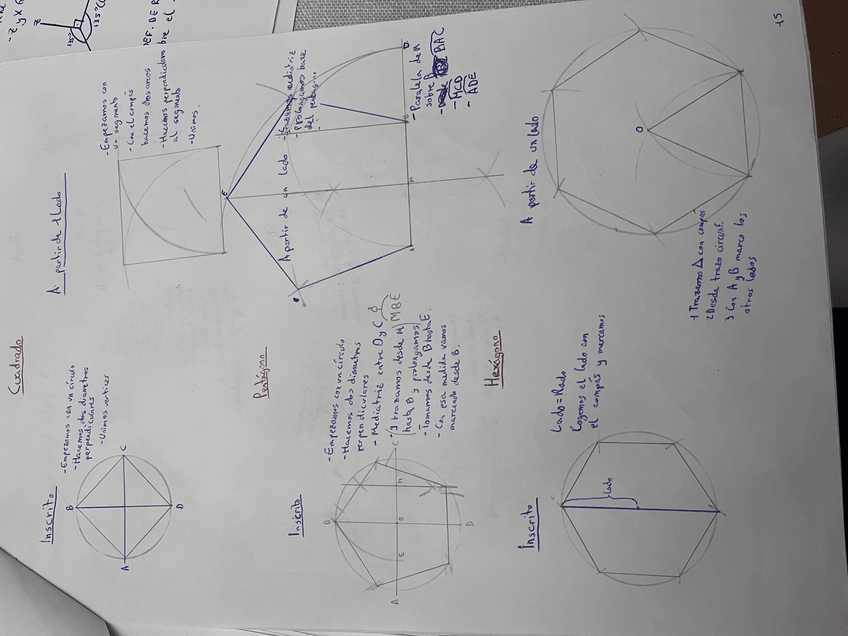 Cuadrado
Inscrito
- Empezamos con un círculo
- Hacemos dos diametros
perpendiculares
- Unimos vertices
A
B
C
D
A partir de 1 lado
- Empezamos con
un segmento
- Con el compás
hacemos dos arcos
- Hacemos perpendiculares
al segmento
- Unimos.
Pentágono
Inscrito
- Empezamos con un círculo
- Hacemos dos diametros
perpendiculares
- Mediatriz entre O y C
- Y trazamos desde M
hasta B y prolongamos
MBE
- Tomamos desde B hasta E.
- Con esa medida vamos
marcando desde B.
A partir de un lado
- Trazamos mediatriz
- Prolongamos base
- Paralela de M
sobre B
BAC
- MCD
- ADE
Hexágono
Inscrito
Lado = Radio
Cogemos el lado con
el compás y marcamos
lado
A partir de un lado
O
1 Trazamos Δ con compás
2 Desde trazo circunf.
3 Con A y B marco los
otros lados
15